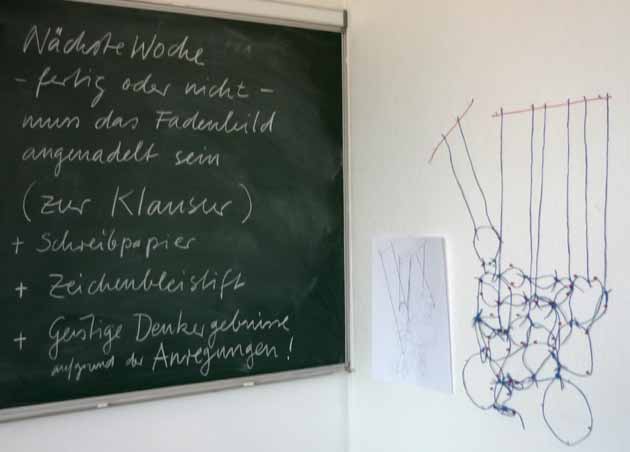 Nächste Woche
- fertig oder nicht -
muss das Fadenbild
angenadelt sein
(zur Klausur)
+ Schreibpapier
+ Zeichenbleistift
+ Geistige Denkergebnisse
aufgrund der Anregungen!